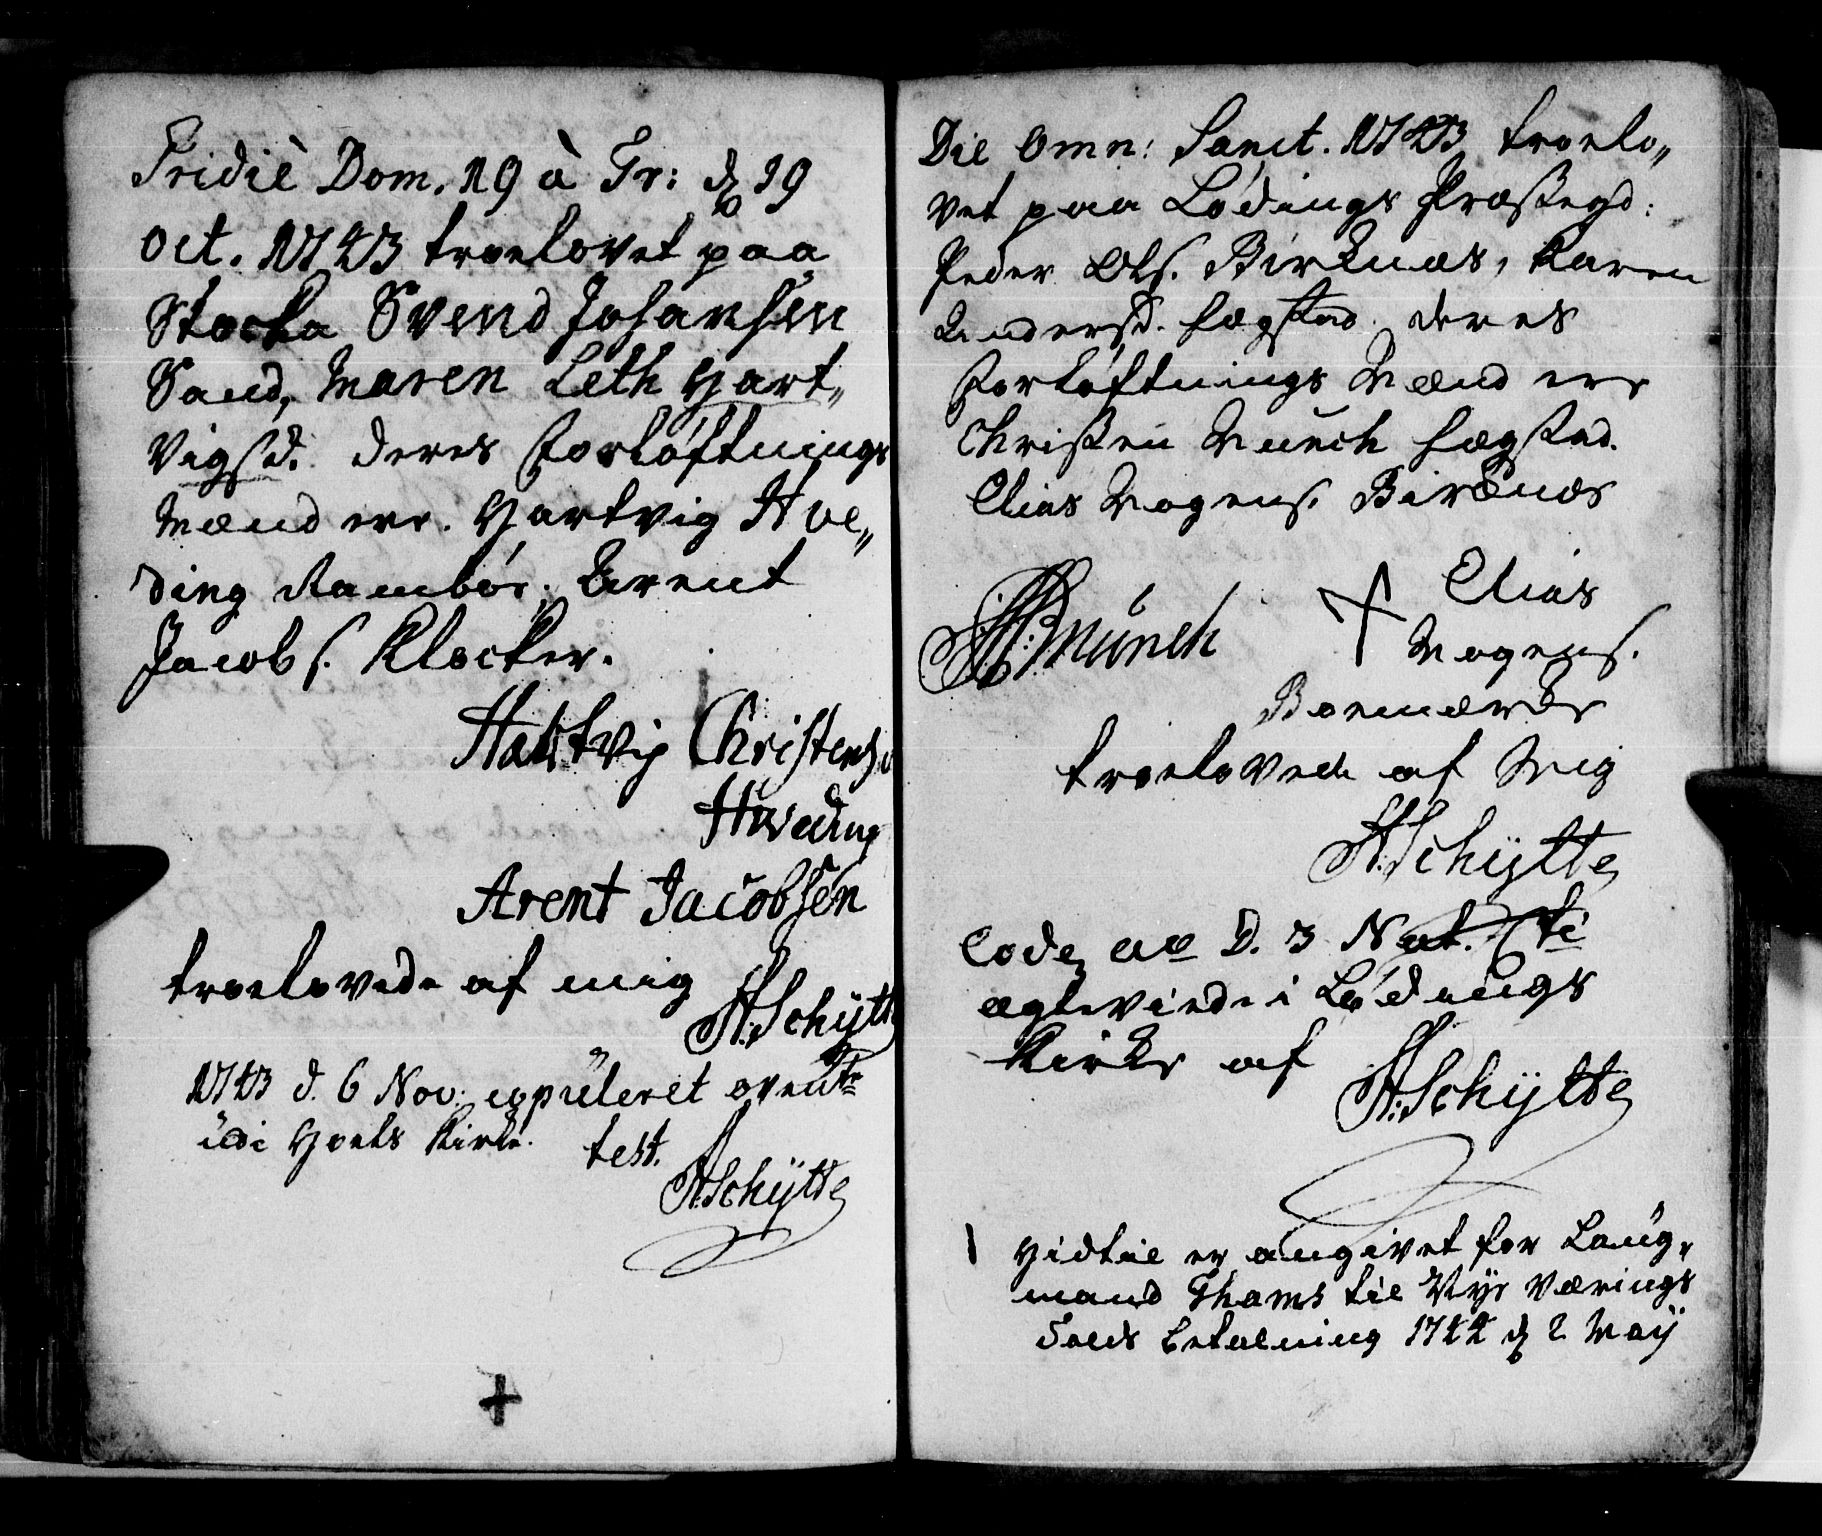 Pridiè Dom. 19 à Tr: d 19
Oct. 1743 troelovet paa
Stocka Svend Johansen
Sand, Maren Leth Hart„
vigsd. deres Forløftnings
Mænd ere. Hartvig Hve„
ding Rambøe. Arent
Jacobs. Klocker.
Hartvig Christens:
Hweding
Arent Jacobsen
troelovede af mig
A: Schytte
1743 d. 6 Nov. copuleret ovente
udi Hoels Kirke. test.
A: Schytte
Die Omn: Sanct. 1743 troelo„
vet paa Lødings Præstegd:
Peder Ols. Birknæs, Karen
Andersd. Hegstad. deres
Forløftnings Mænd ere
Christen Munch Hegstad.
Elias Mogens. Birknæs
Münch
Elias
Mogens.
Boemærke
troelovede af Mig
A: Schytte
Eod: D. 3 Nat. Cti
ægteviede i Lødings
Kirke af
A: Schytte
Hidtil er angivet for Laug„
mand Thams til Nye Værings
Folds betalning 1744 d 2 Maij